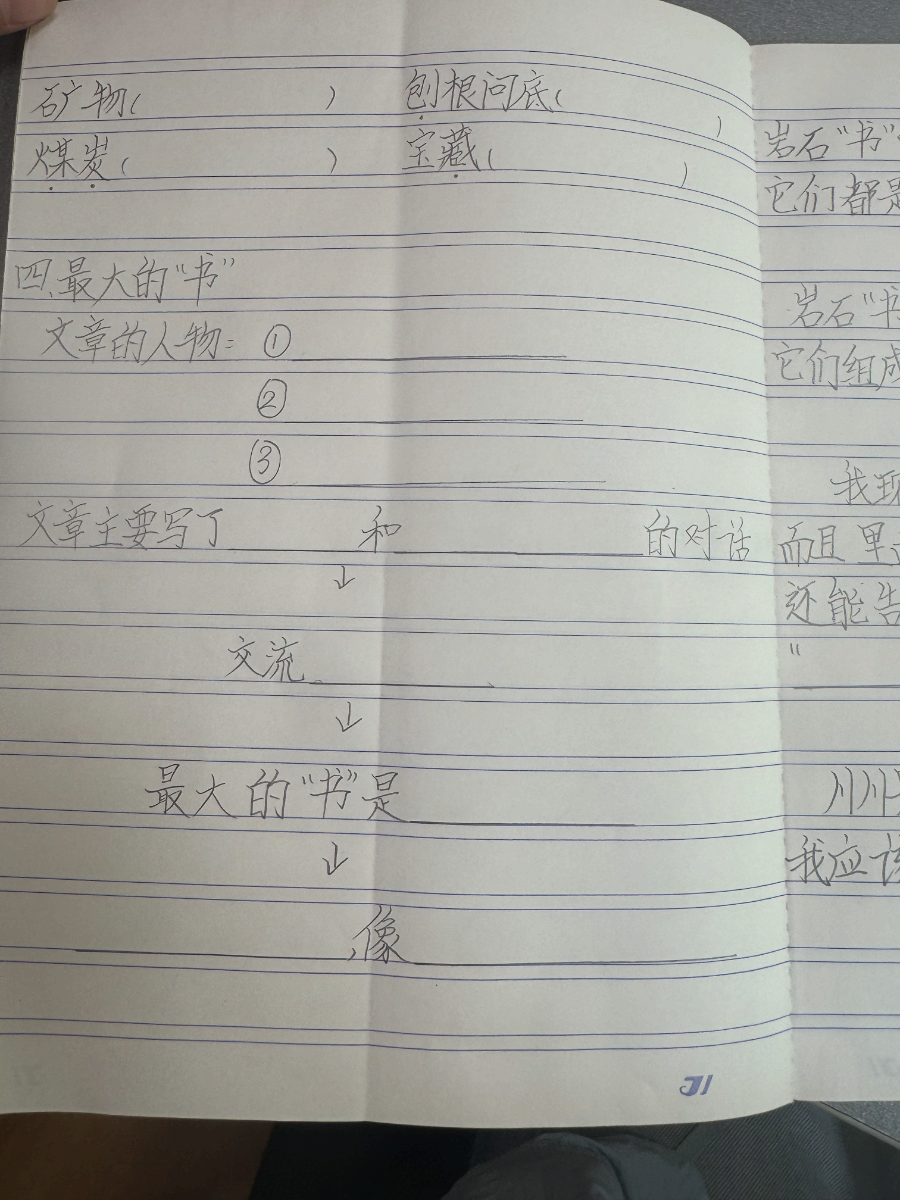 矿物(          )  刨根问底(          )
煤炭(          )  宝藏(          )
四、最大的“书”
文章的人物: ①
②
③
文章主要写了          和          的对话
↓
交流
↓
最大的“书”是
↓
,像
31
岩石“书”
它们都是
岩石“书
它们组成
我现
而且里
还能告
“
川川
我应该